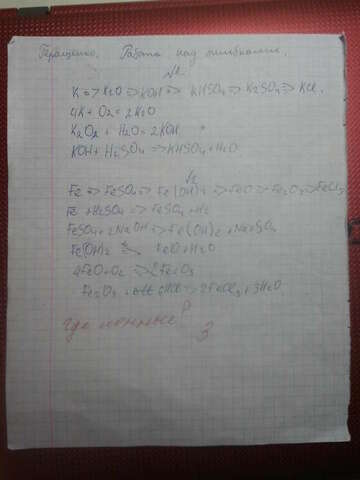 Геращенко. Работа над ошибками.
K => K2O => KOH => KHSO4 => K2SO4 => KCl.
4K + O2 = 2K2O
K2O + H2O = 2KOH
KOH + H2SO4 => KHSO4 + H2O
№2
Fe => FeSO4 => Fe(OH)2 => FeO => Fe2O3 => FeCl3
Fe + H2SO4 => FeSO4 + H2
FeSO4 + 2NaOH => Fe(OH)2 + Na2SO4
Fe(OH)2 => FeO + H2O
4FeO + O2 => 2Fe2O3
Fe2O3 + 6HCl => 2FeCl3 + 3H2O
где ионные?
3